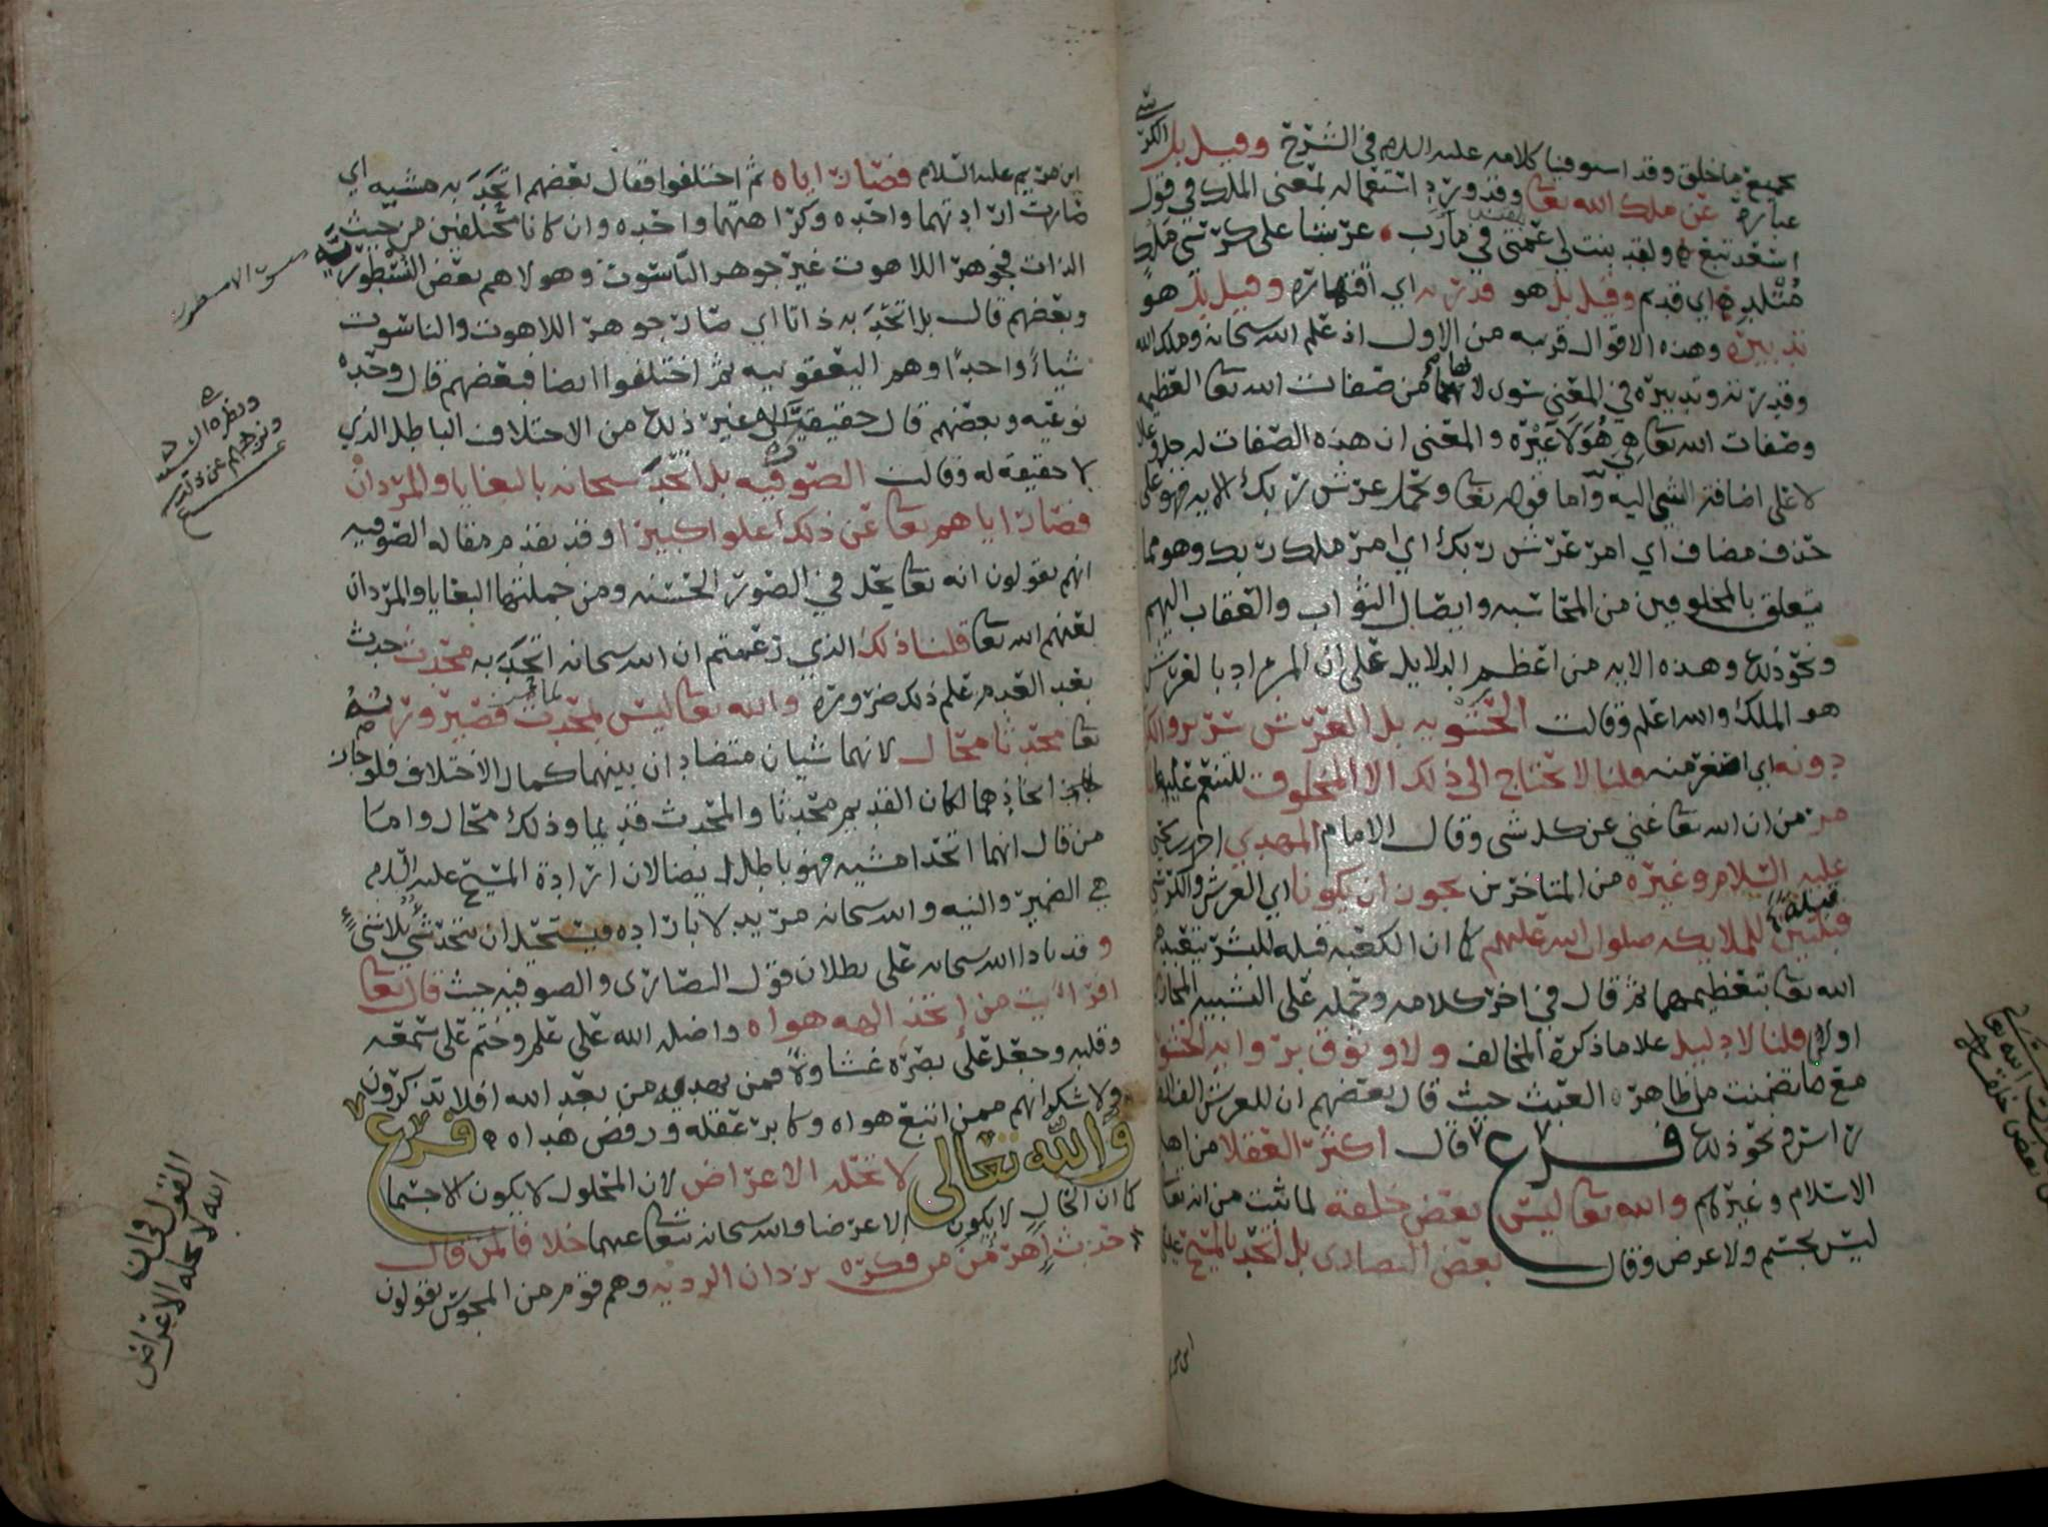 بجميع ما خلق وقد استوفينا كلامه عليه السلام في الشرح وقيل بل الكرسي
عبارة عن ملك الله تعا وقد ورد استعماله بمعنى الملك في قول
اسعد تبع ولقد بنت لي عمتي في مارب عرشا على كرسي ملك
متلد اي قديم وقيل بل هو قدرته اي اقتداره وقيل بل هو
تدبيره وهذه الاقوال قريبه من الاول اذ علم الله سبحانه وملك الله
وقدرته وتدبيره في المعنى سوى لانها من صفات الله تعا العظيم
وصفات الله تعا هي هو لا غيره والمعنى ان هذه الصفات له جل وعلا
لا على اضافة الشي اليه واما قوله تعا ويحمل عرش ربك الايه فهو على
حذف مضاف اي امر عرش ربك اي امر ملك ربك وهو مما
يتعلق بالمخلوقين من المحاسبه وايصال الثواب والعقاب اليهم
ونحو ذلك وهذه الايه من اعظم الدلايل على ان المراد بالعرش
هو الملك والله اعلم وقالت الحشويه بل العرش سرير والكرسي
دونه اي اصغر منه قلنا لا يحتاج الى ذلك الا المخلوق
مر من ان الله تعا غني عن كل شي وقال الامام المهدي احمد بن يحيى
عليه السلام وغيره من المتاخرين يجوز ان يكونا اي العرش والكرسي
قبلتين للملايكه صلوات الله عليهم كما ان الكعبه قبله للبشر
الله تعا بتعظيمهما ثم قال في اخر كلامه وحمله على التشبيه المجازي
اولى قلنا لا دليل على ما ذكره المخالف ولا وثوق برواية الحشويه
مع ما تضمنت من ظاهره العبث حيث قال بعضهم ان للعرش الف الف
راس ونحو ذلك فرع قال اكثر العقلا من اهل
الاسلام وغيرهم والله تعا ليس بعض خلقه لما ثبت من انه تعا
ليس بجسم ولا عرض وقال بعض النصارى بل اتحد بالمسيح عيسى
ابن مريم عليه السلام فصار اياه ثم اختلفوا فقال بعضهم اتحد به مشيه اي
صارت ارادتهما واحده وكراهتهما واحده وان كانا مختلفين من حيث
الذات فجوهر اللاهوت غير جوهر الناسوت وهولاهم بعض النسطوريه
وبعضهم قال بل اتحد به ذاتا اي صار جوهر اللاهوت والناسوت
شياء واحدا وهم اليعقوبيه ثم اختلفوا ايضا فبعضهم قال وحده
نوعيه وبعضهم قال حقيقيه الى غير ذلك من الاختلاف الباطل الذي
لا حقيقه له وقالت الصوفيه بل اتحد سبحانه بالبغايا والمردان
فصار اياهم تعا عن ذلك علوا كبيرا وقد تقدم مقاله الصوفيه
انهم يقولون انه تعا يحل في الصور الحسنه ومن جملتها البغايا والمردان
لعنهم الله تعا قلنا ذلك الذي زعمتم ان الله سبحانه اتحد به محدث حدث
بعد العدم علم ذلك ضروره والله تعا ليس بمحدث فصيرورته
تعا محدثا محال لانهما شيان متضادان بينهما كمال الاختلاف فلو جاز
اتحادهما لكان القديم محدثا والمحدث قديما وذلك محال واما
من قال انهما اتحدا مشيه فهو باطل ايضا لان ارادة المسيح عليه السلام
هي الضمير والنيه والله سبحانه مريد لا بارادة فيستحيل ان يتحد شي بلا شي
وقد نادا الله سبحانه على بطلان قول النصارى والصوفيه حيث قال تعا
افرايت من اتخذ الهه هواه واضله الله على علم وختم على سمعه
وقلبه وجعل على بصره غشاوة فمن يهديه من بعد الله افلا تذكرون
ولا شك انهم ممن اتبع هواه وكابر عقله ورفض هداه فرع
والله تعالى لا تحله الاعراض لان المحلول لا يكون الا جسما
كما ان الحال لا يكون الا عرضا والله سبحانه تعا عنهما خلافا لمن قال
حدث اهرمن من فكره يزدان الرديه وهم قوم من المجوس يقولون
القول في ان
الله لا تحله الاعراض